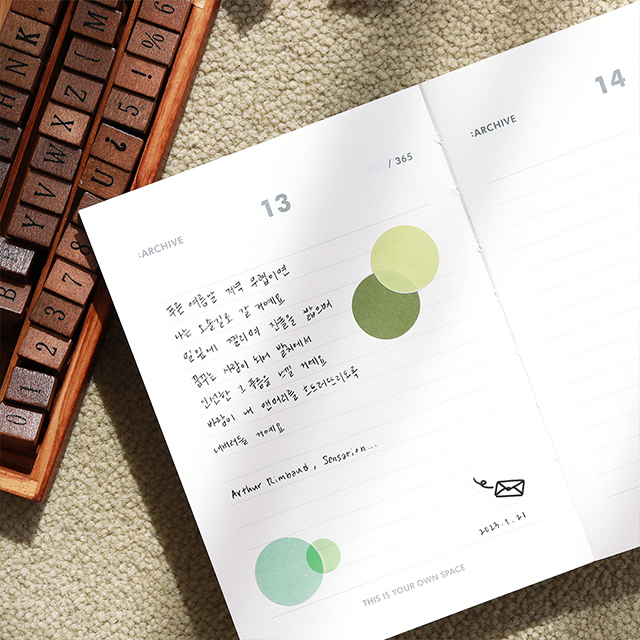 HNK.
M(
9%
5!
WXZ
U?
YVWX
78
23
01
B
13
/ 365
:ARCHIVE
푸른 여름날 저녁 무렵이면
나는 오솔길로 갈 거예요
밀잎에 찔리며 잔풀을 밟으며
꿈꾸는 사람이 되어 발치에서
신선한 그 푸름을 느낄 거예요
바람이 내 맨머리를 흐트러뜨리도록
내버려둘 거예요
Arthur Rimbaud, Sensation...
2023.1.21
THIS IS YOUR OWN SPACE
14
:ARCHIVE